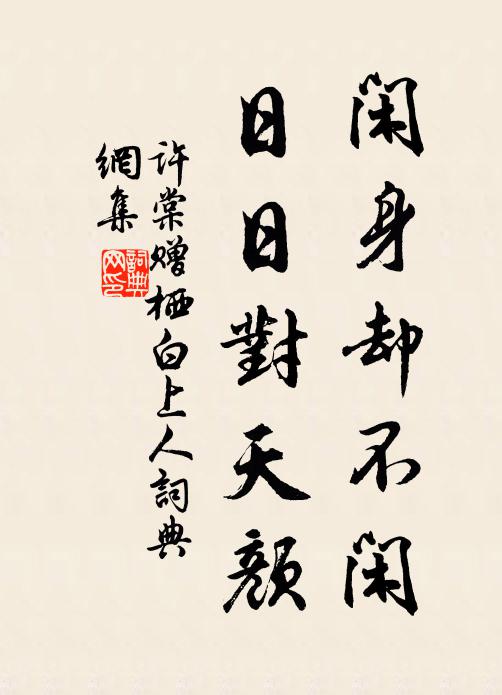 闲身却不闲
日日對天顏
许棠赠栖白上人詞典
網集
詞典
网印